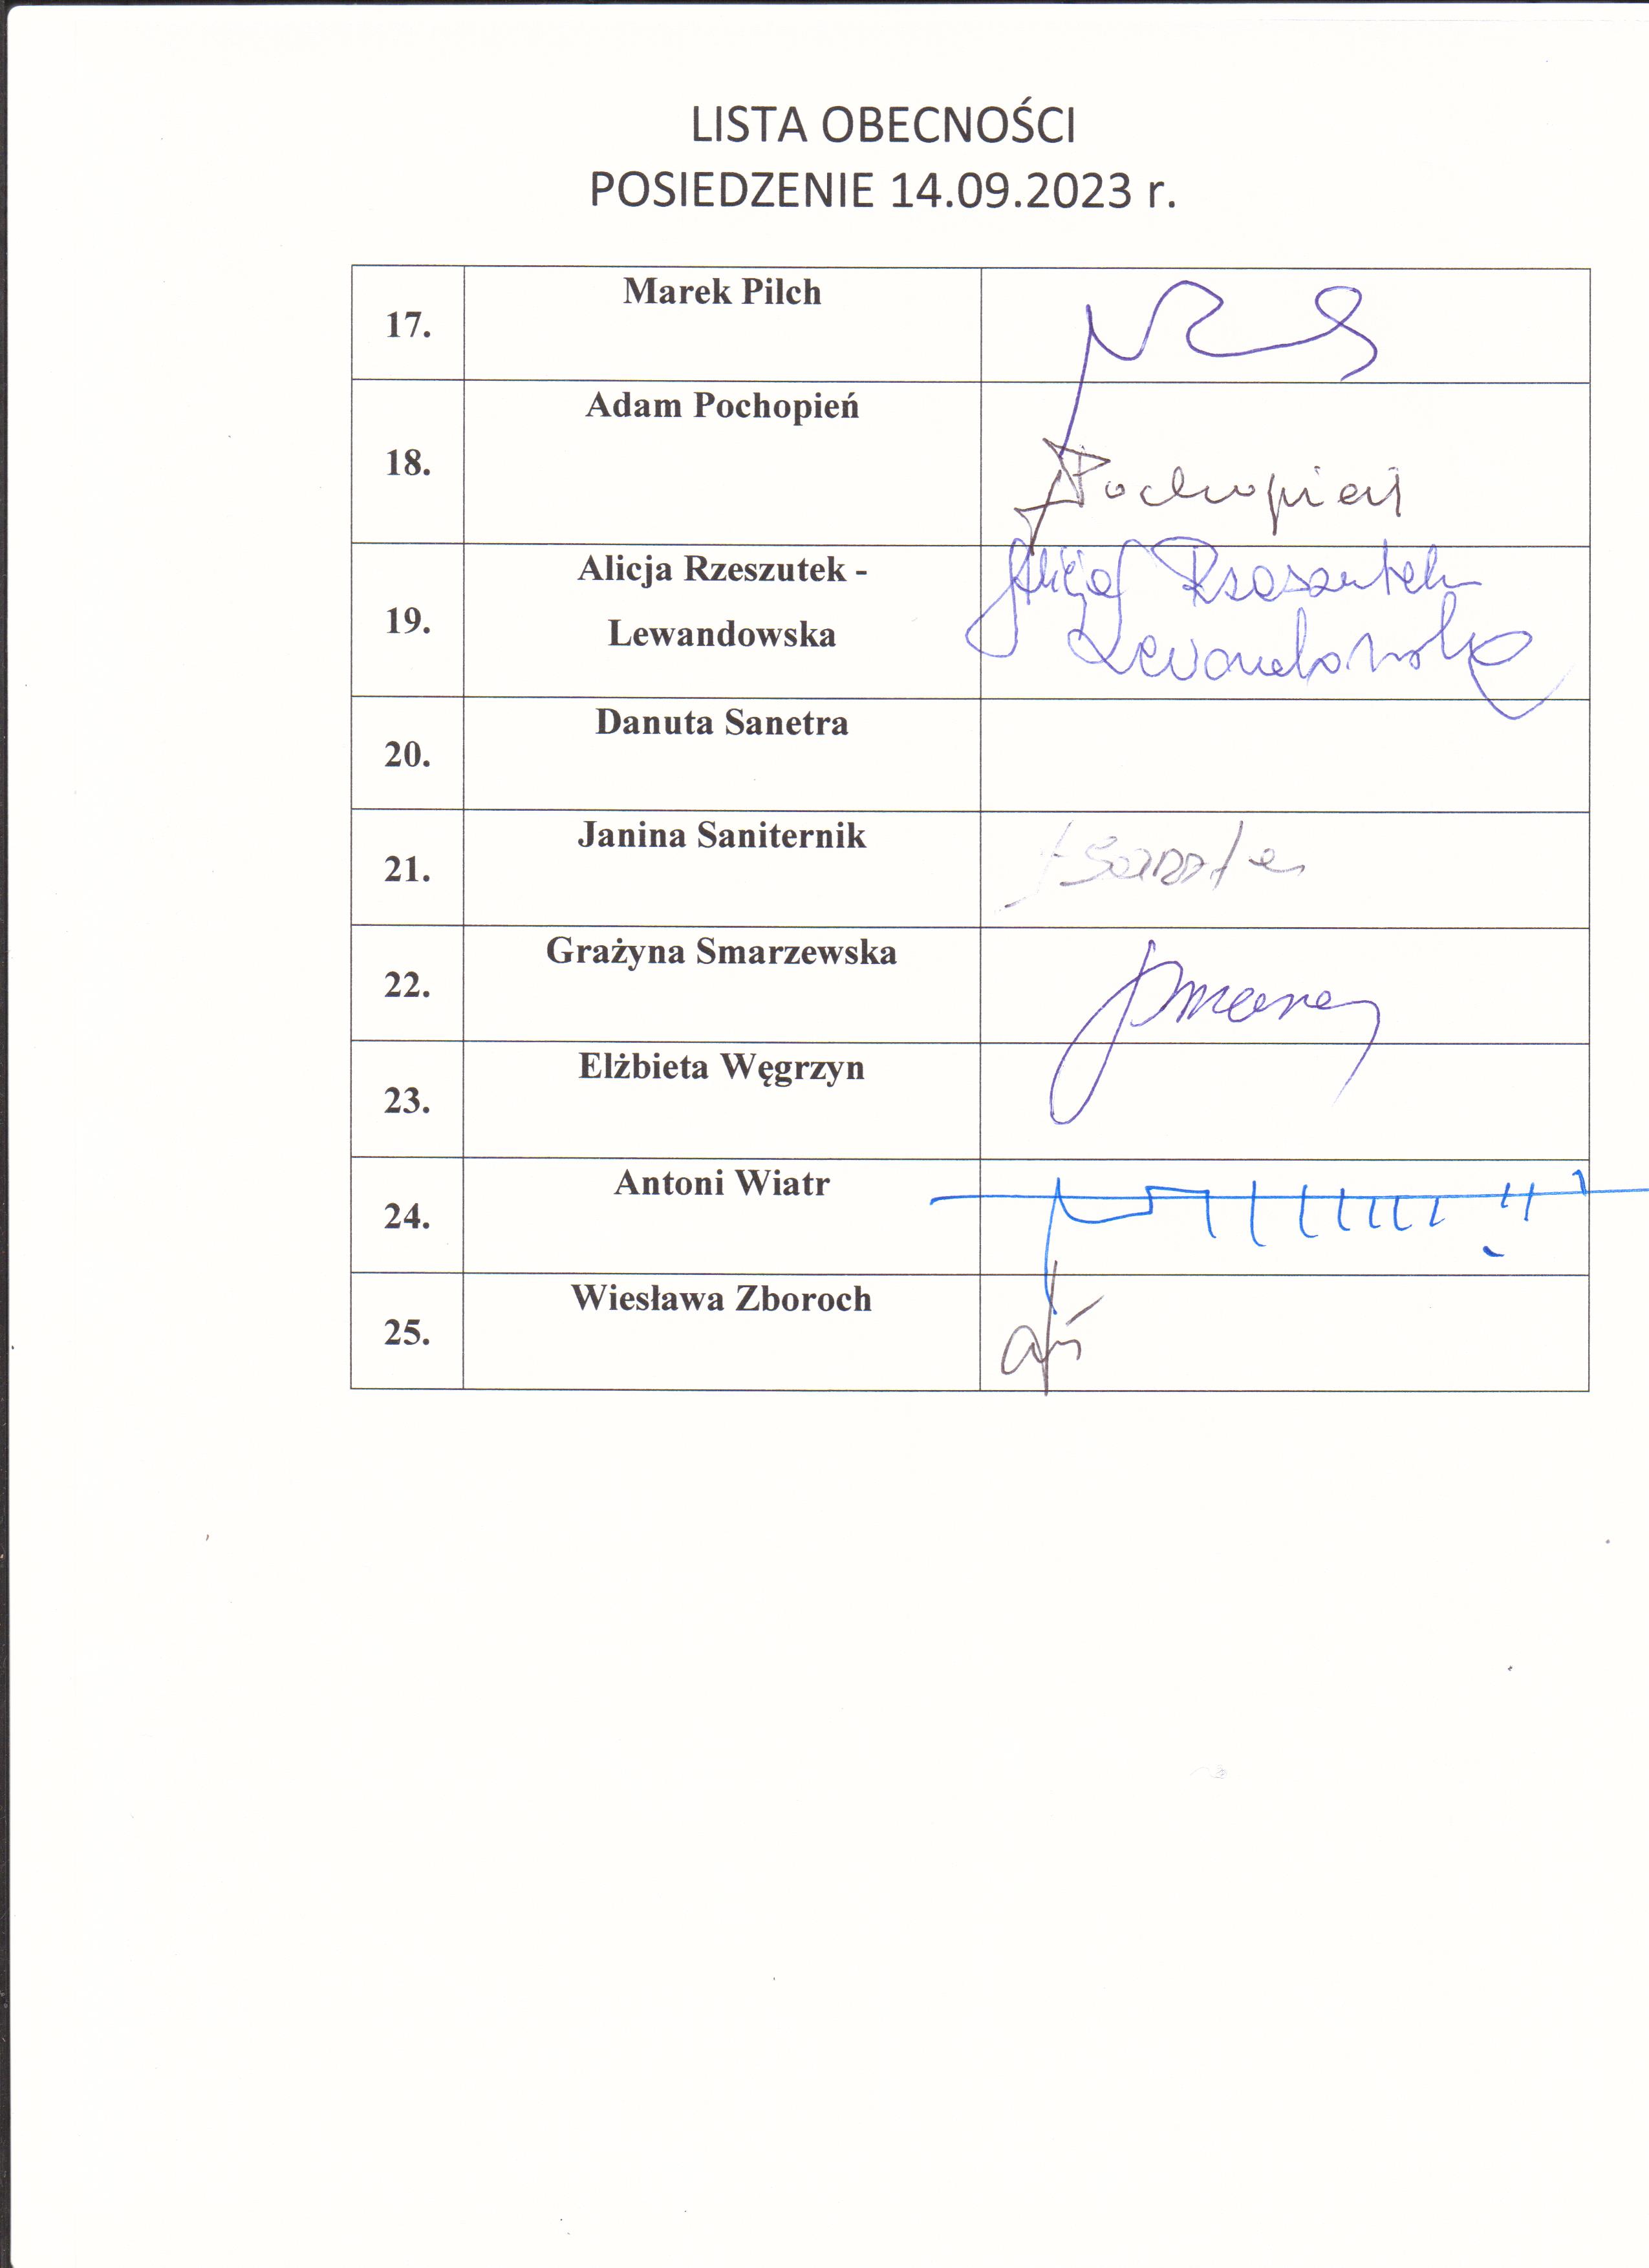 LISTA OBECNOŚCI
POSIEDZENIE 14.09.2023 r.
17. Marek Pilch
18. Adam Pochopień
Pochopień
19. Alicja Rzeszutek -
Lewandowska
Alicja Rzeszutek
Lewandowska
20. Danuta Sanetra
21. Janina Saniternik
22. Grażyna Smarzewska
23. Elżbieta Węgrzyn
24. Antoni Wiatr
25. Wiesława Zboroch